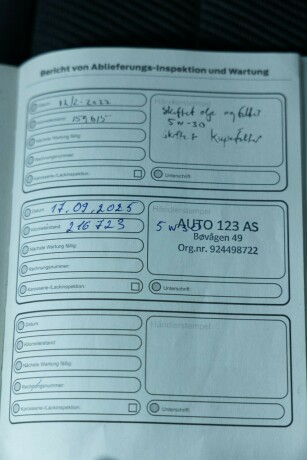 Bericht von Ablieferungs-Inspektion und Wartung
Datum
Kilometerstand
Nächste Wartung fällig:
Rechnungsnummer:
Karosserie-/Lackinspektion:
Skiftet olje og filter
5w-30
Unterschrift
Datum 17.09.2025
Kilometerstand 216723
Nächste Wartung fällig:
Rechnungsnummer:
Karosserie-/Lackinspektion:
Händlerstempel
5w30
AUTO 123 AS
Bøvågen 49
Org.nr. 924498722
Unterschrift
Datum
Kilometerstand
Nächste Wartung fällig:
Rechnungsnummer:
Karosserie-/Lackinspektion:
Händlerstempel
Unterschrift